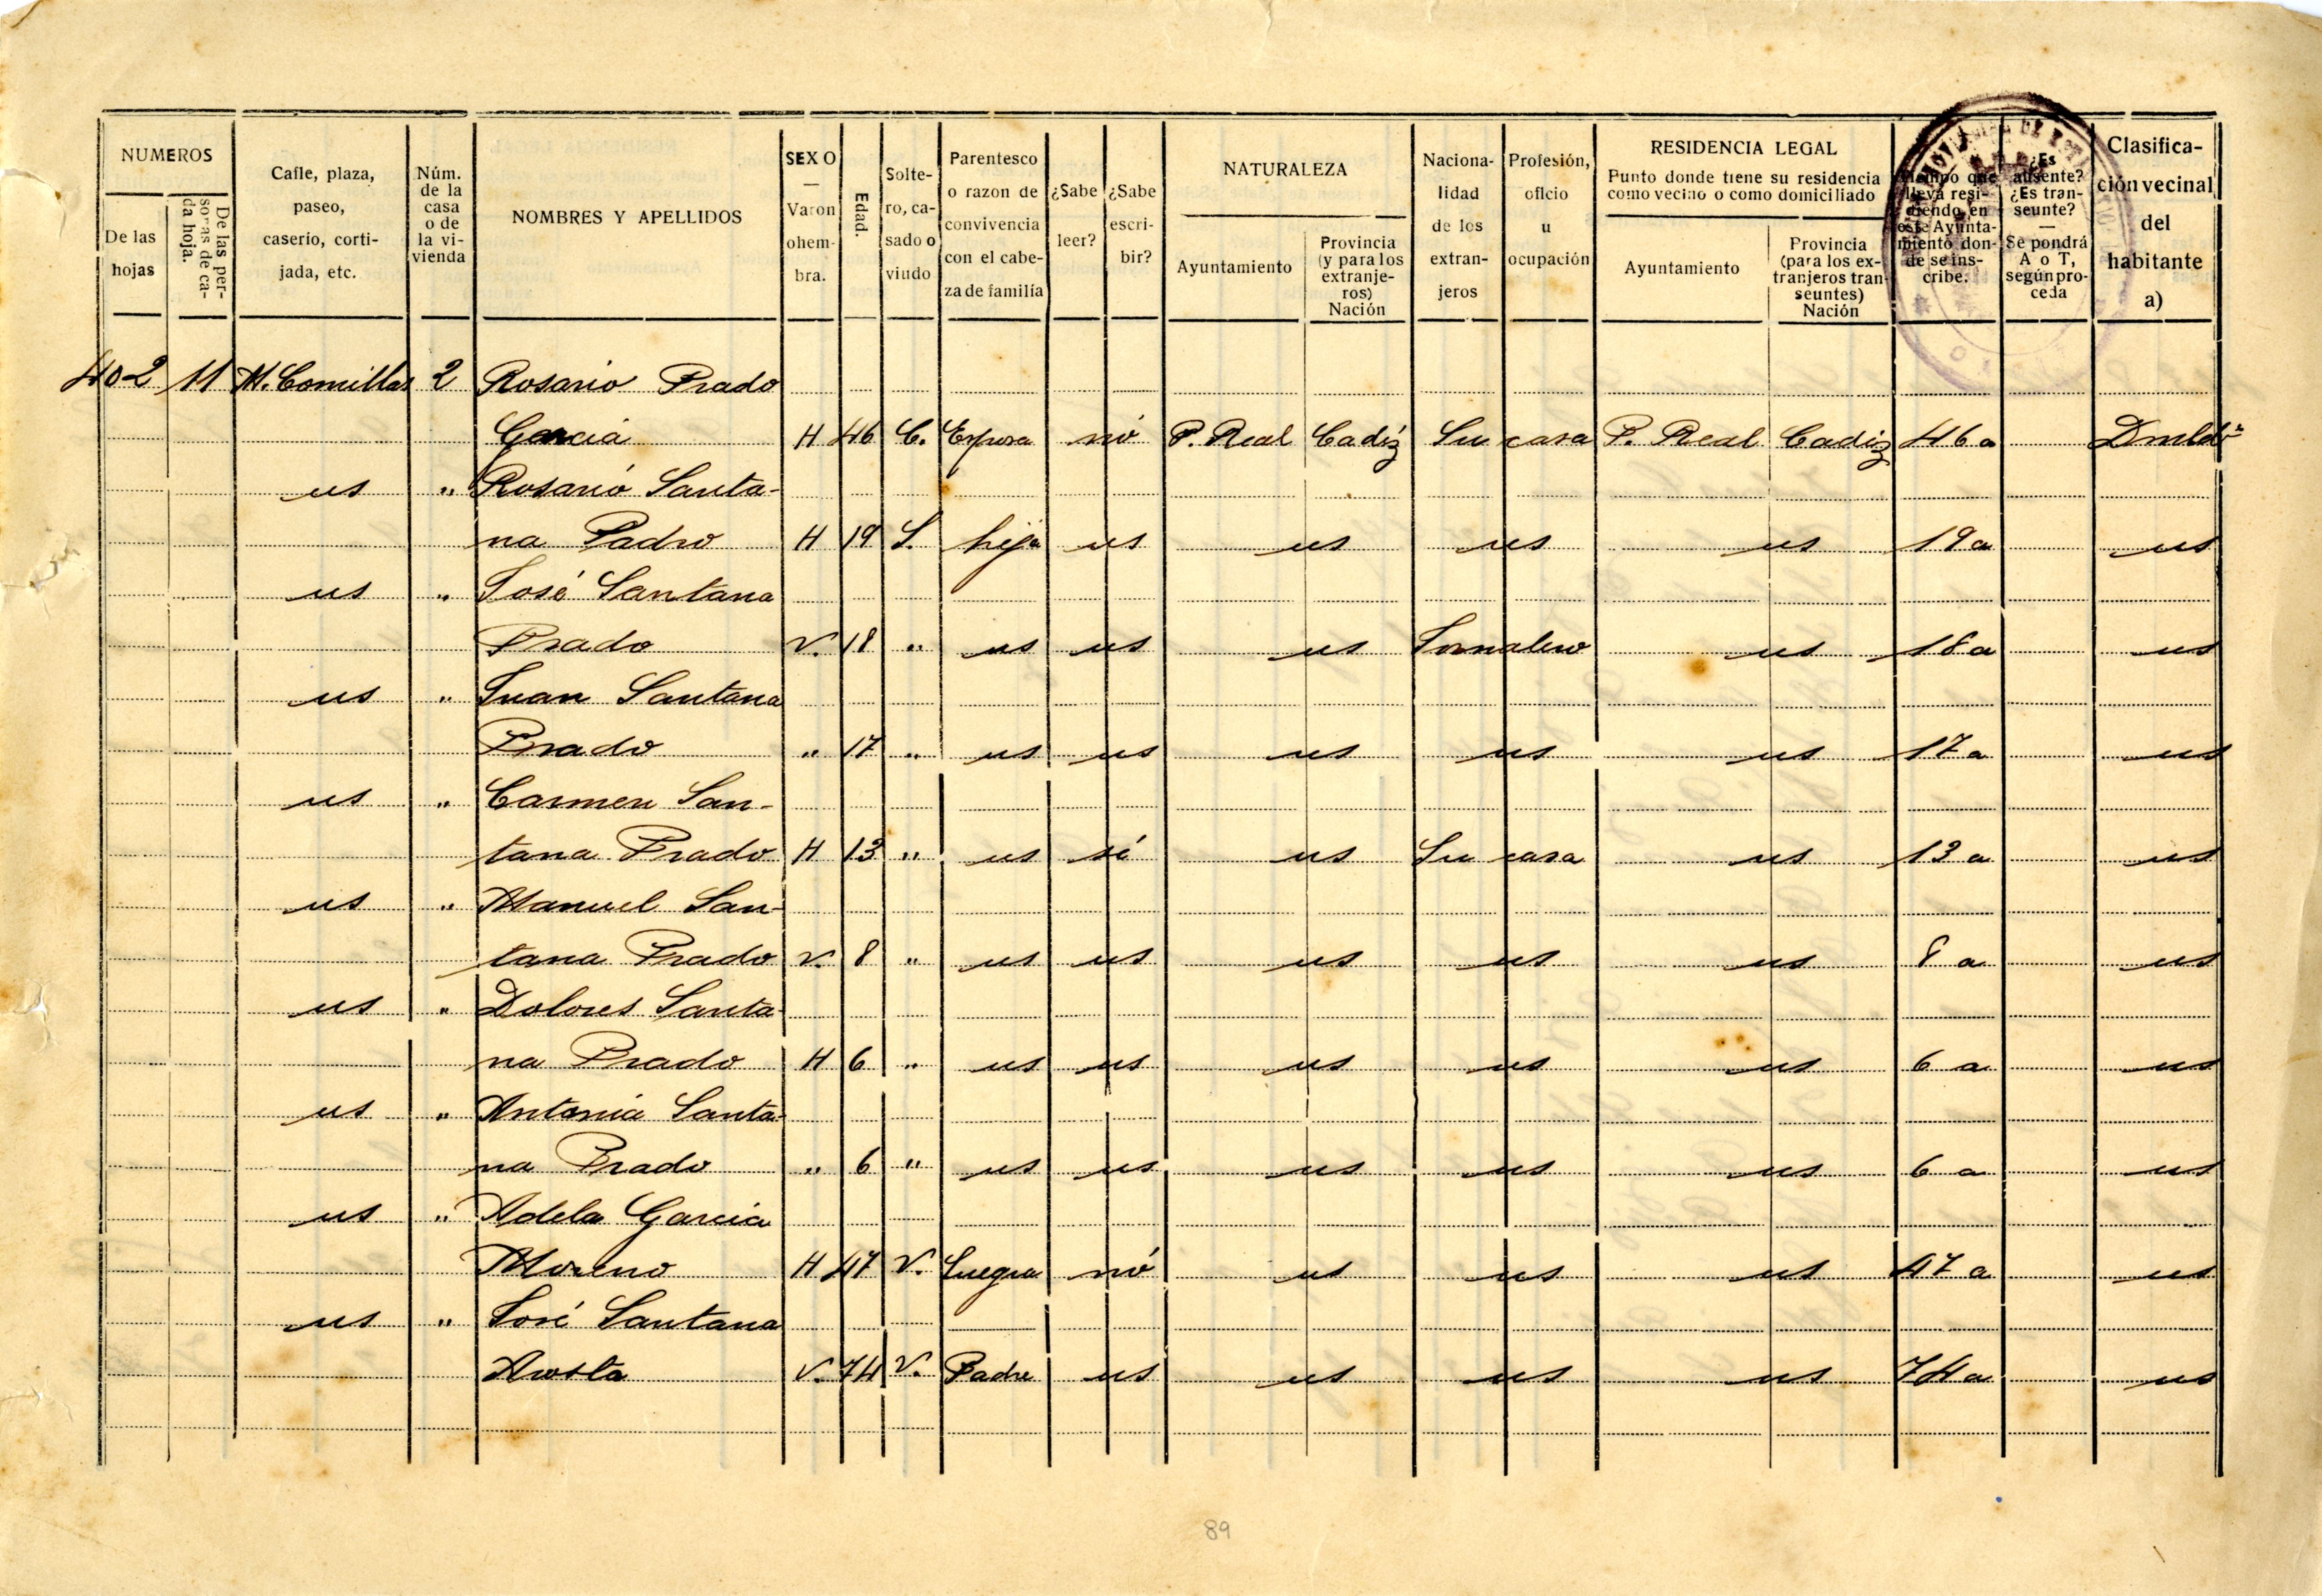 NUMEROS
De las hojas
De las personas de cada hoja.
Calle, plaza, paseo, caserio, cortijada, etc.
Núm. de la casa o de la vivienda
NOMBRES Y APELLIDOS
SEXO — Varon ohembra.
Edad.
Soltero, casado o viudo
Parentesco o razon de convivencia con el cabeza de familia
¿Sabe leer?
¿Sabe escribir?
NATURALEZA
Ayuntamiento
Provincia (y para los extranjeros) Nación
Nacionalidad de los extranjeros
Profesión, oficio u ocupación
RESIDENCIA LEGAL
Punto donde tiene su residencia como vecino o como domiciliado
Ayuntamiento
Provincia (para los extranjeros transeuntes) Nación
Tiempo que lleva residiendo en este Ayuntamiento donde se inscribe.
¿Es ausente? ¿Es transeunte? — Se pondrá A o T, según proceda
Clasificación vecinal del habitante a)
402 11 M. Comillas 2 Rosario Prado
Garcia H 46 C. Esposa nó P. Real Cadiz Su casa P. Real Cadiz 46 a Dmldº
us " Rosario Santa-
na Padro H 19 S. hija us us us us 19 a us
us " José Santana
Prado V. 18 " us us us Jornalero us 18 a us
us " Juan Santana
Prado " 17 " us us us us us 17 a us
us " Carmen San-
tana Prado H 13 " us sí us Su casa us 13 a us
us " Manuel San-
tana Prado V. 8 " us us us us us 8 a us
us " Dolores Santa-
na Prado H 6 " us us us us us 6 a us
us " Antonia Santa-
na Prado " 6 " us us us us us 6 a us
us " Adela Garcia
Moreno H 47 V. Suegra nó us us us 47 a us
us " José Santana
Acosta V. 74 V. Padre us us us us 74 a us
89